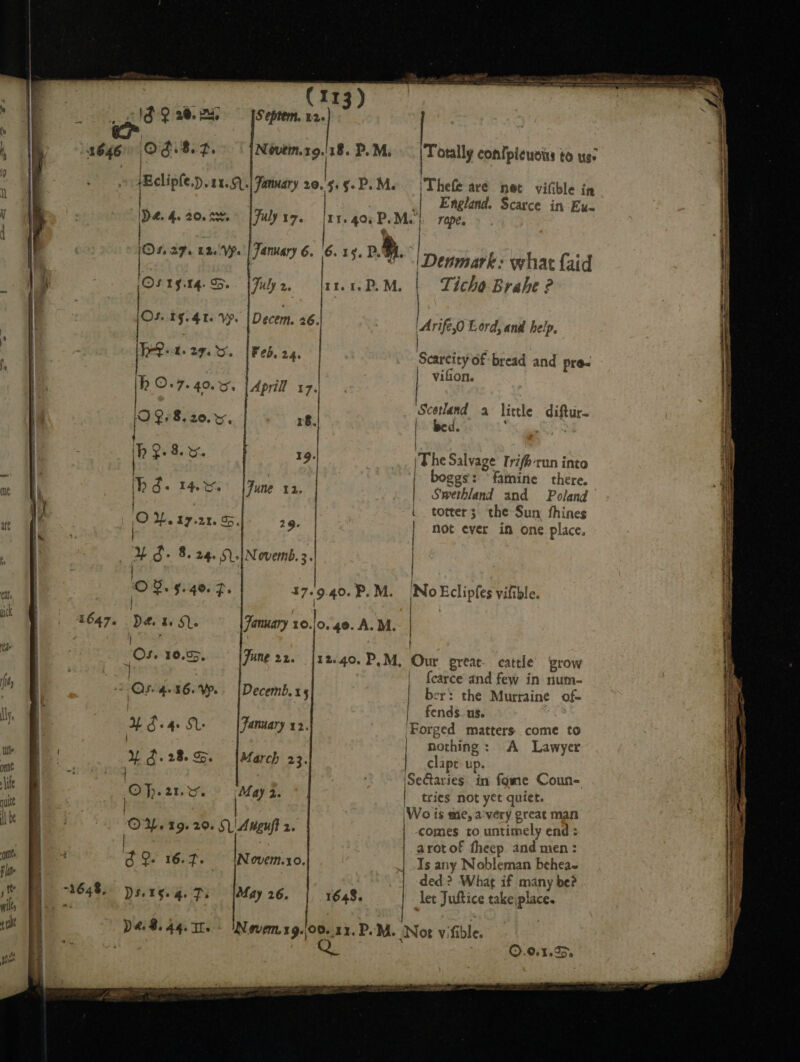 (113)
☌ ♀ 20. ♎. Septem. 12.
1646 ☉ ☌. 8. ♐. Novem. 19. 18. P. M. Totally conſpicuous to us.
Eclipſe. ☽. 11. ♌. January 20. 5. 5. P. M. Theſe are not viſible in
England. Scarce in Eu-
De. 4. 20. ♒. July 17. 11. 40. P. M. rope.
Os. 27. 12. ♑. January 6. 6. 15. P. M. Denmark: what ſaid
Os 15. 14. ♋. July 2. 11. 1. P. M. Ticho Brahe?
Os. 15. 41. ♑. Decem. 26.
Ariſe, O Lord, and help.
♄ ♀. 1. 27. ♉. Feb. 24. Scarcity of bread and pro-
viſion.
♄ ☉. 7. 40. ♉. Aprill 17.
☉ ♀. 8. 20. ♉. 18. Scotland a little diſtur-
bed.
♄ ♀. 8. ♉. 19. The Salvage Triſh run into
boggs: famine there.
♄ ♂. 14. ♉. June 12. Swethland and Poland
totter; the Sun ſhines
☉ ♃. 17. 21. ♋. 29. not ever in one place.
♃ ♂. 8. 24. ♌. Novemb. 3.
5. 40. ♐. 17. 9 40. P. M. No Eclipſes viſible.
1647. De. 1. ♌. January 10. 0. 40. A. M.
Os. 10. ♋. June 22. 12. 40. P. M. Our great cattle grow
ſcarce and few in num-
Os. 4. 16. ♑. Decemb. 15 ber: the Murraine of-
fends us.
♃ ♂. 4. ♌. January 12. Forged matters come to
nothing: A Lawyer
♃ ♂. 28. ♋. March 23. clapt up.
Sectaries in ſome Coun-
☉ ♄. 21. ♉. May 2. tries not yet quiet.
Wo is me, a very great man
☉ ♃. 19. 20. ♌ Auguſt 2. comes to untimely end:
a rot of ſheep and men:
♂ ♀. 16. ♐. Novem. 10. Is any Nobleman behea-
ded? What if many be?
1648. Ds. 15. 4. ♐. May 26. 1648. let Juſtice take place.
De. 8. 44. ♊. Novem. 19. 00. 11. P. M. Not viſible.
Q ☉. 0. 1. ♋.